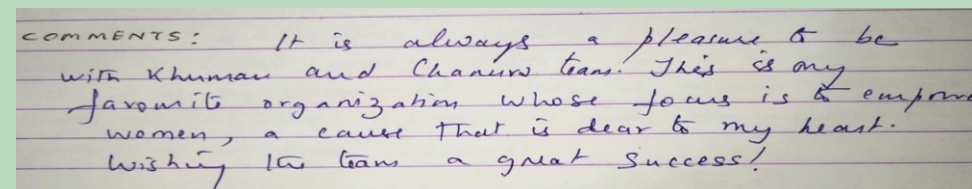 COMMENTS: It is always a pleasure to be
with Khuman and Chanura team. This is my
favourite organization whose focus is to empower
women, a cause that is dear to my heart.
Wishing the team a great success!